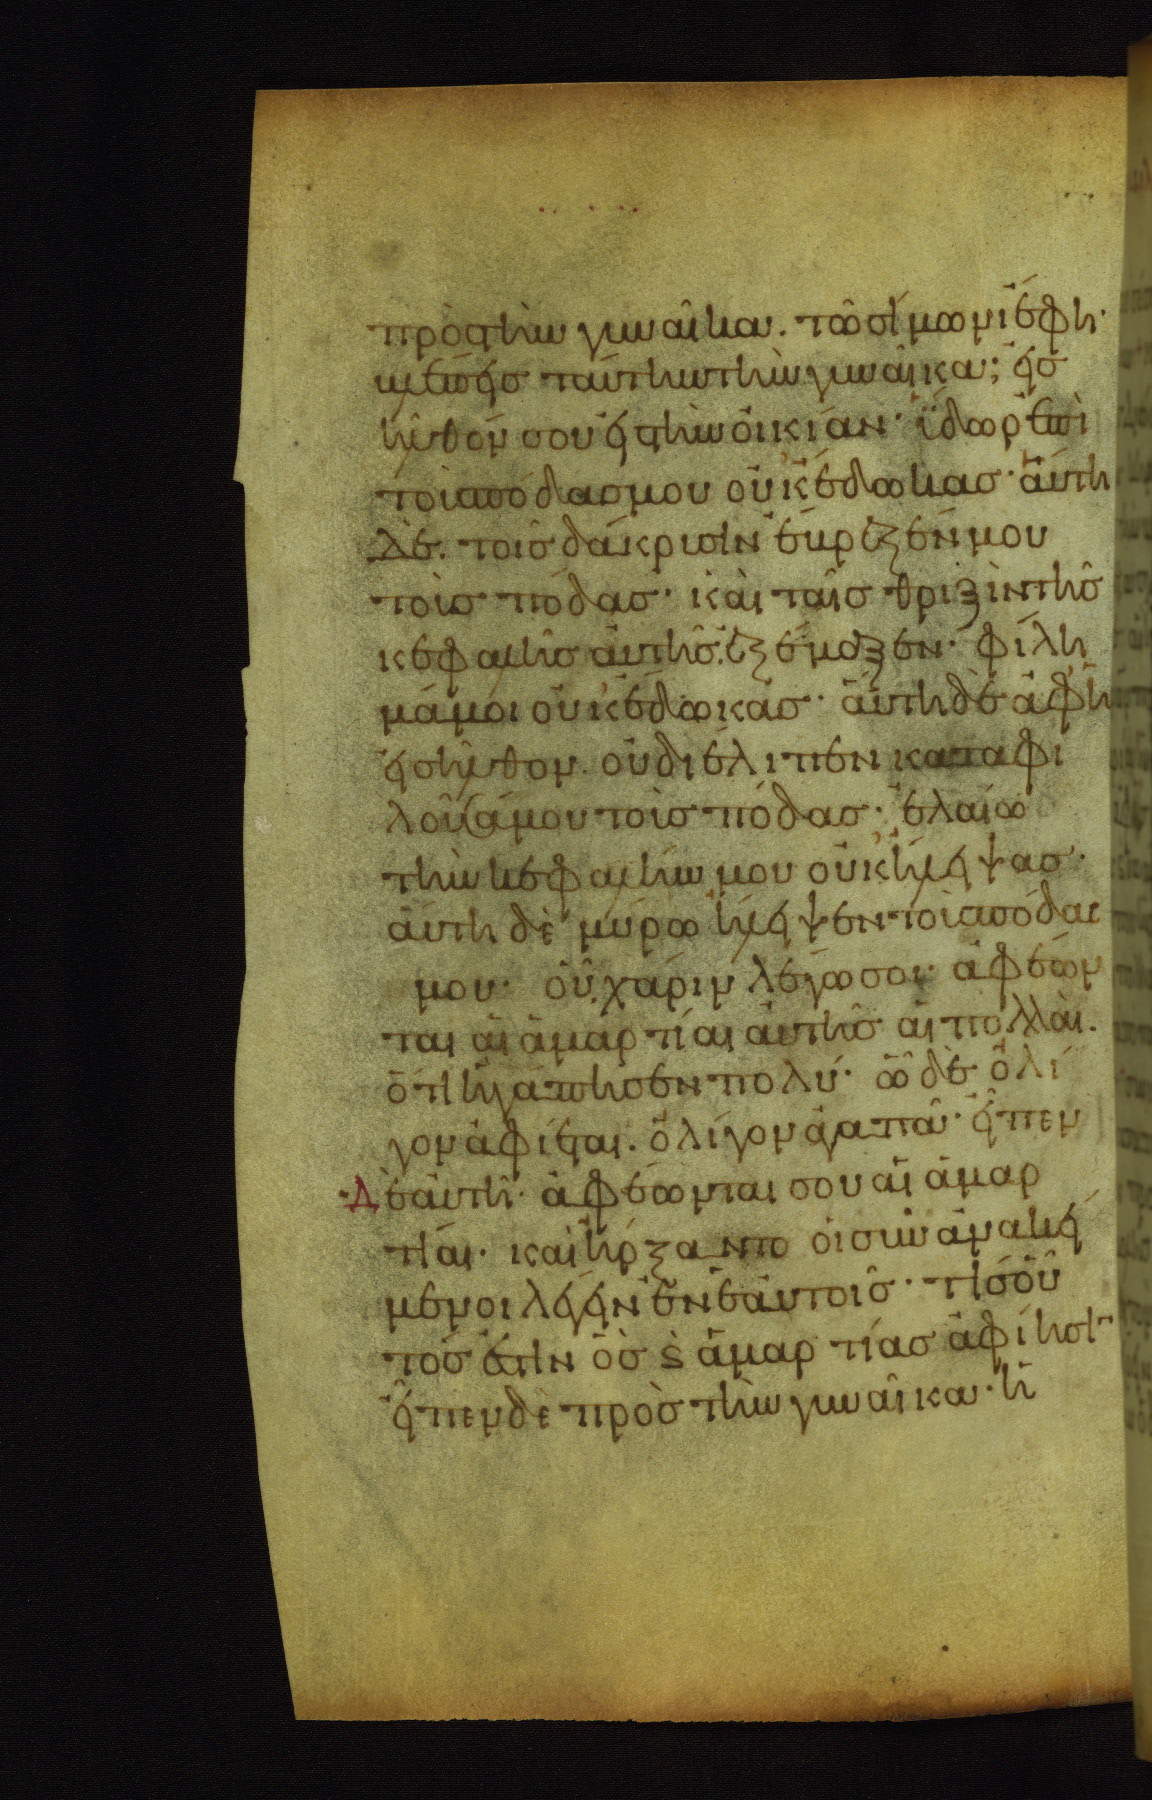 πρὸς τὴν γυναῖκα. τῶ σίμωνι ἔφη·
βλέπεις ταύτην τὴν γυναῖκα; εἰσ
ῆλθόν σου εἰς τὴν οἰκίαν· ὕδωρ ἐπὶ
τοὺς πόδας μου οὐκ ἔδωκας· ἅυτη
δὲ. τοῖς δάκρισϊν ἔβρεξέν μου
τοὺς πόδας· καὶ ταῖς θριξὶν τῆς
κεφαλῆς ἁυτῆς ἐξέμαξεν· φίλη
μά μοι οὐκ ἔδωκας· ἅυτη δὲ ἀφ ἧ
εἰσῆλθον οὐ διέλιπεν καταφι
λοῦσά μου τοὺς πόδας· ἐλαίω
τὴν κεφαλήν μου οὐκ ἤλειψας·
ἅυτη δὲ μύρω ἤλειψεν τοὺς πόδας
μου· οὗ χάριν λέγω σοι· ἀφέων
ται αἱ ἁμαρτίαι ἀυτῆς αἱ πολλαι.
ὅτι ἠγάπησεν πολύ· ὧ δὲ ὀλί
γον ἀφίεται. ὀλίγον ἀγαπᾶ· εἶπεν
Δὲ ἀυτῆ· ἀφέωνταί σου αἱ ἁμαρ
τίαι· καὶ ἤρξαντο οἱ συνανακεί
μενοι λέγειν ἐν ἑαυτοῖς· τίς οὗ
τός ἐστιν ὃς ϗ ἁμαρτίας ἀφίησι
εἶπεν δὲ πρὸς τὴν γυναῖκα· ἡ